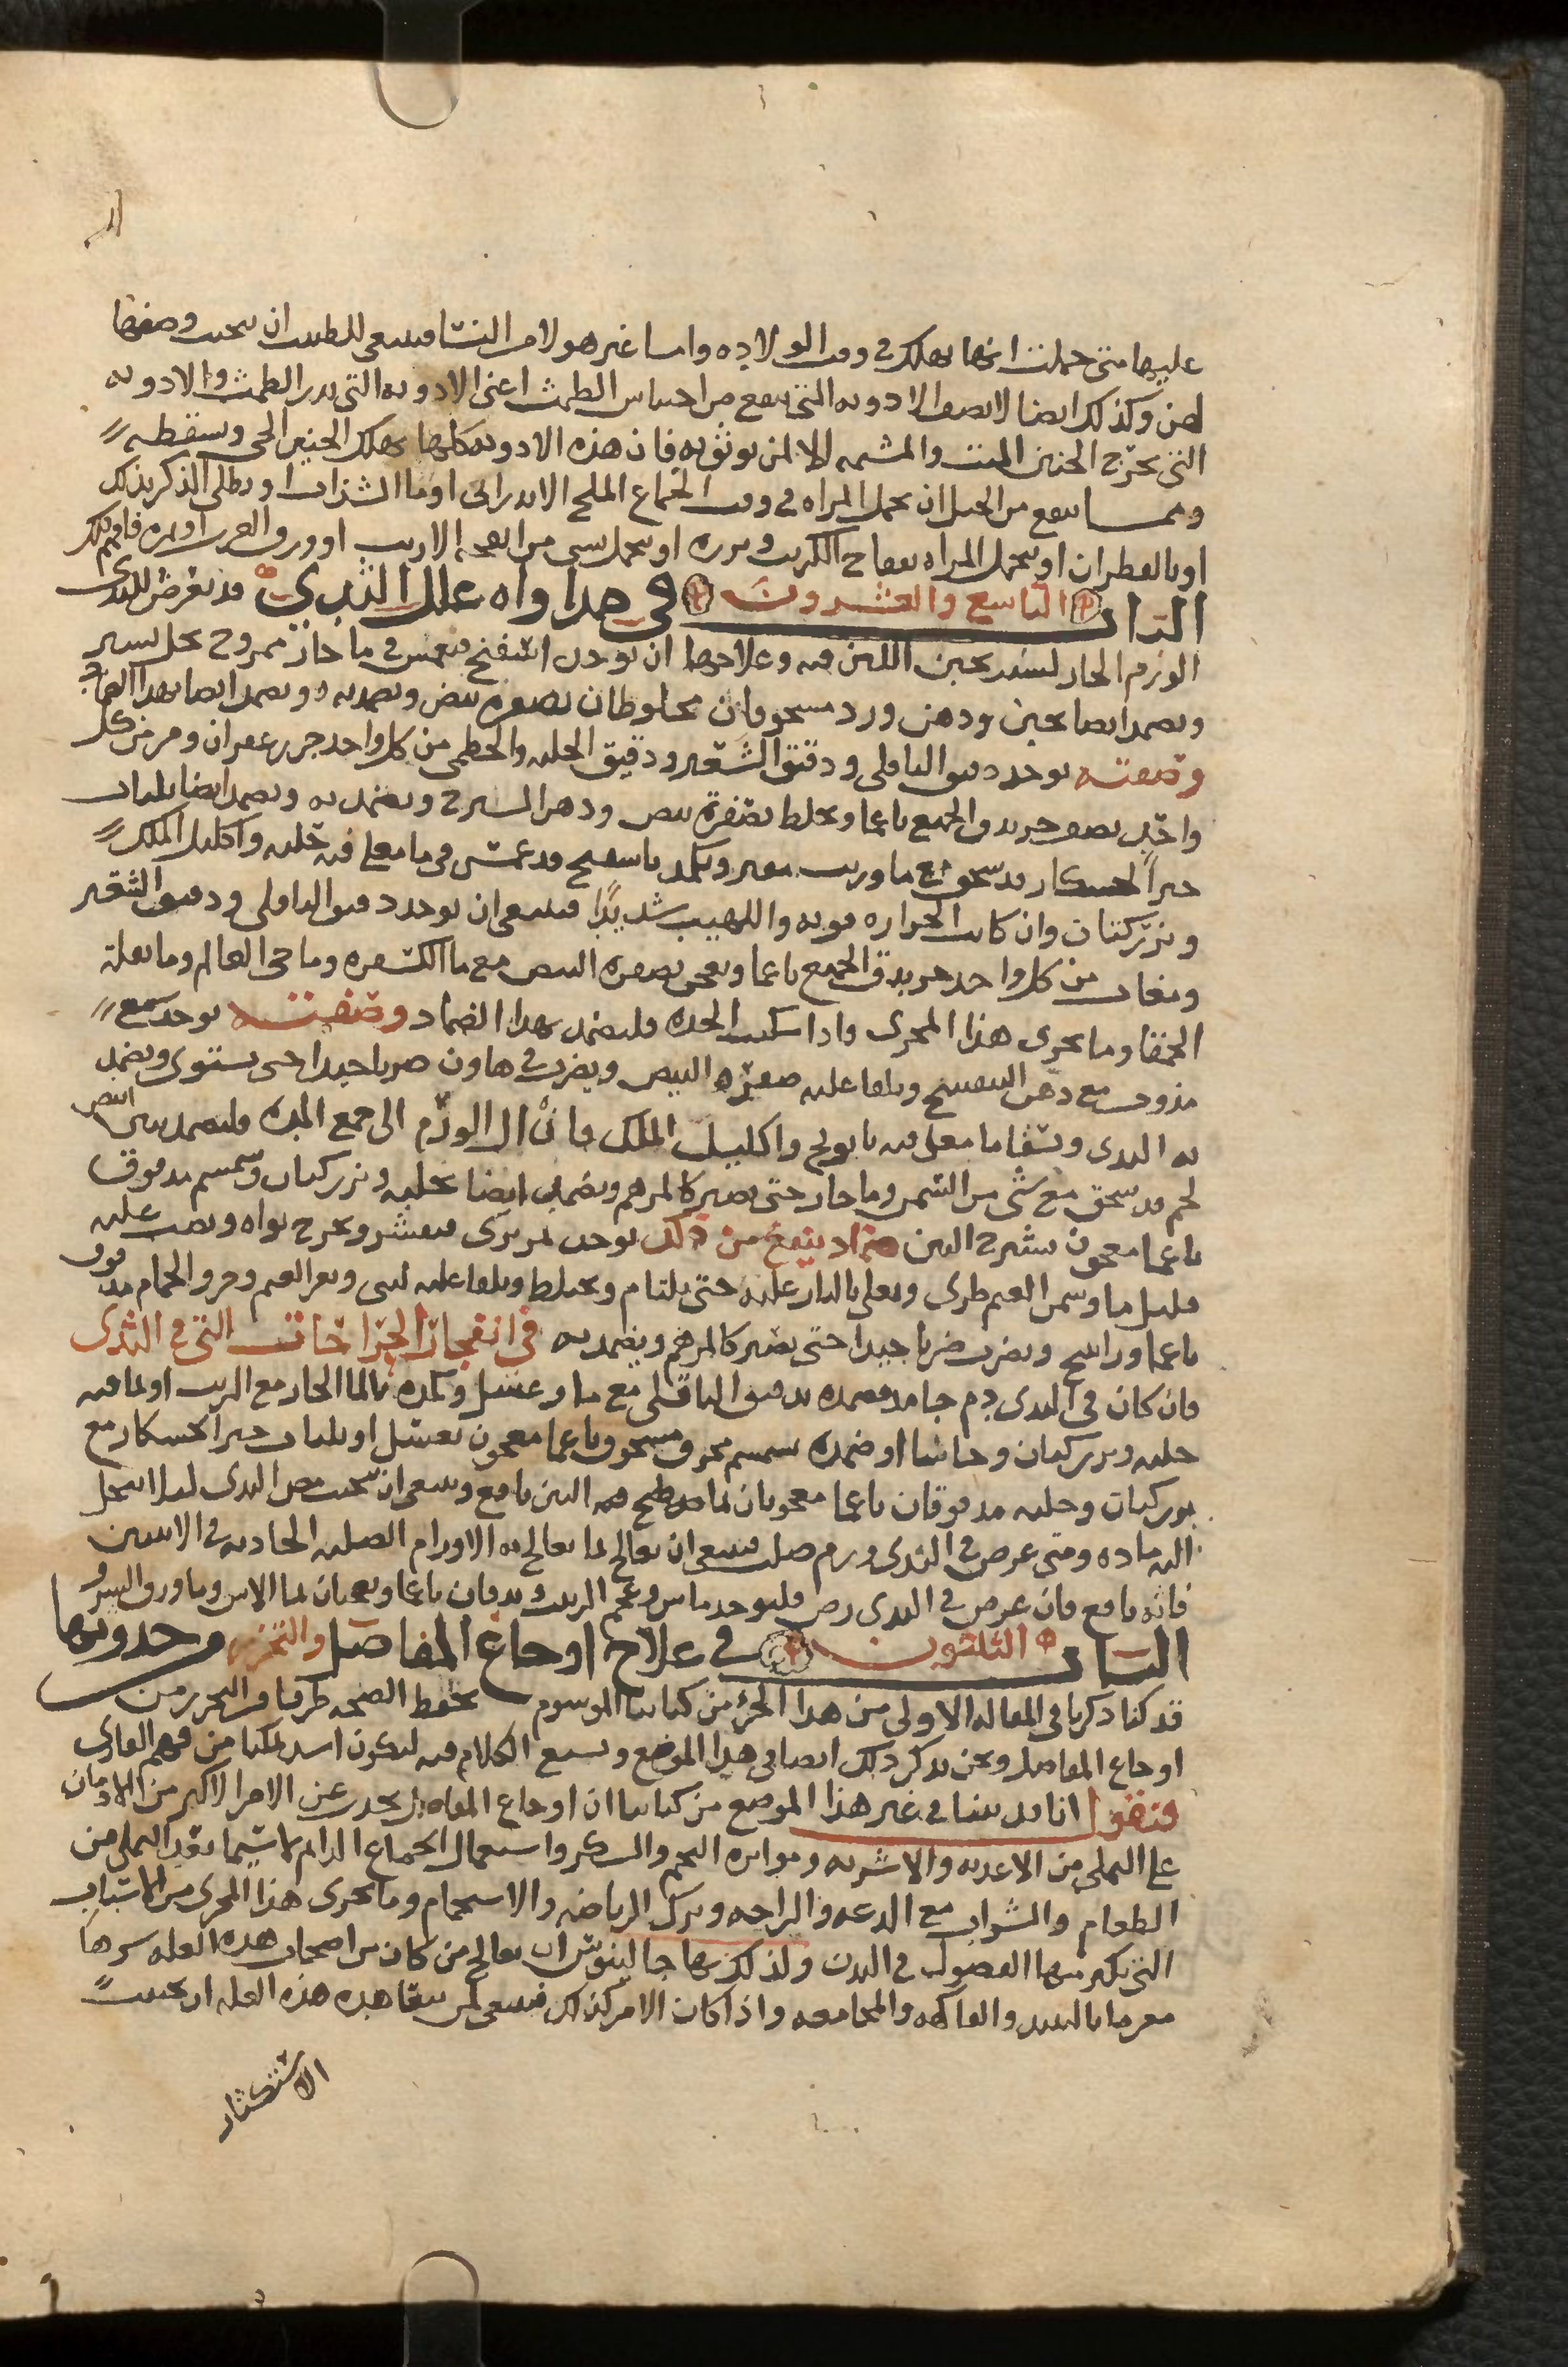 عليها متى حملت انها تهلك في وقت الولاده واما غير هولا من النسا فينبغي للطبيب ان يجتنب وصفها
لهن وكذلك ايضا لا يصف الادويه التي تنفع من احتباس الطمث اعني الادويه التي تدر الطمث والادويه
التي تخرج الجنين الميت والمشيمه الا لمن يوثق به فان هذه الادويه كلها تهلك الجنين الحي وتسقطه
ومما ينفع من الحبل ان تحمل المراه في وقت الجماع الملح الاندراني او ما الشذاب او يطلى الذكر بذلك
او بالقطران او تتحمل المراه بفقاح الكرنب وبزره او تتحمل بشي من انفحه الارنب او ورق الغرب
الباب التاسع والعشرون في مداواه علل الثدي قد يعرض للثدي
الورم الحار لسبب تجبن اللبن فيه وعلاجها ان يوخذ اسفنج فيغمس في ما حار ممزوج بخل يسير
ويضمد ايضا بخبز ودهن ورد مسحوقان مخلوطان بصفره بيض ويضمد به ويضمد ايضا بهذا الضماد
وصفته يوخذ دقيق الباقلي ودقيق الشعير ودقيق الحلبه والخطمي من كل واحد جزو زعفران ومر من كل
واحد نصف جزو يدق الجميع ناعما ويخلط بصفرة بيض ودهن السيرج ويضمد به ويضمد ايضا بلباب
خبز الخشكار قد سحق مع ما وزيت مغير ويكمد باسفنج قد غمس في ما مغلي فيه حلبه واكليل الملك
وبزر كتان وان كانت الحراره قويه واللهيب شديدًا فينبغي ان يوخذ دقيق الباقلي ودقيق الشعير
ومغاث من كل واحد جزو يدق الجميع ناعما ويعجن بصفره البيض مع ما الكسفره وما حي العالم وما بقلة
الحمقا وما يجري هذا المجرى واذا سكنت الحده فليضمد بهذا الضماد وصفته يوخذ شمع
مذوب مع دهن البنفسج ويلقا عليه صفره البيض ويضرب في هاون ضربا جيدا حتى يستوي ويضمد
به الثدي ويسقا ما مغلي فيه بابونج واكليل الملك فان ال الورم الى جمع المده فليضمد بتين ابيض
لحم قد سحق مع شي من السمن وما حار حتى يصير كالمرهم ويضمد ايضا بحلبه وبزر كتان وسمسم مدقوق
ناعما معجون بشيرج التين ضماد ينفع من ذلك يوخذ تمر برى فيقشر ويخرج نواه ويصب عليه
قليل ما وسمن الغنم طري ويغلي بالنار عليه حتى يلتام ويختلط ويلقا عليه لبنى وبعر الغنم وخرو الحمام مدقوق
ناعما وراتنج ويضرب ضربا جيدا حتى يصير كالمرهم ويضمد به في انفجار الجراحات التي في الثدي
فان كان في الثدي دم جامد فضمده بدقيق الباقلي مع ما وعسل وكمده بالما الحار مع الزيت او بما فيه
حلبه وبزر كتان وحاشا او ضمده بسمسم محرق مسحوق ناعما معجون بعسل او بلباب خبز الخشكار مع
بزر كتان وحلبه مدقوقان ناعما معجونان بما قد طبخ فيه التين نافع وينبغي ان يجتنب مص الثدي ليلا ينجل
اليه ماده ومتى عرض في الثدي ورم صلب فينبغي ان يعالج بما يعالج به الاورام الصلبه الحادثه في الانثيين
فانه نافع فان عرض في الثدي رض فليوخذ ماس وعجم الزبيب ويدقان ناعما ويعجنان بما الاس وما ورق السرو
الباب الثلثون في علاج اوجاع المفاصل والتحرز من حدوثها
قد كنا ذكرنا في المقاله الاولى من هذا الجزو من كتابنا الموسوم بحفظ الصحه طرفا في التحرز من
اوجاع المفاصل ونحن نذكر ذلك ايضا في هذا الموضع ونشبع الكلام فيه ليكون اشد تمكنا من فهم القاري
فنقول انا قد بينا في غير هذا الموضع من كتابنا ان اوجاع المفاصل تحدث عن الامر الاكثر من الادمان
على التملي من الاغذيه والاشربه ومواتره التخم والسكر واستعمال الجماع الدايم لا سيما بعد التملي من
الطعام والشراب مع الدعه والراحه وترك الرياضه والاستحمام وما يجري هذا المجرى من الاسباب
التي يكثر منها الفضول في البدن ولذلك نها جالينوس ان يعالج من كان من اصحاب هذه العله شرها
مغرما بالنبيذ والفاكهه والمجامعه واذا كان الامر كذلك فينبغي لمن يتعاهده هذه العله ان يجتنب
الاستكثار